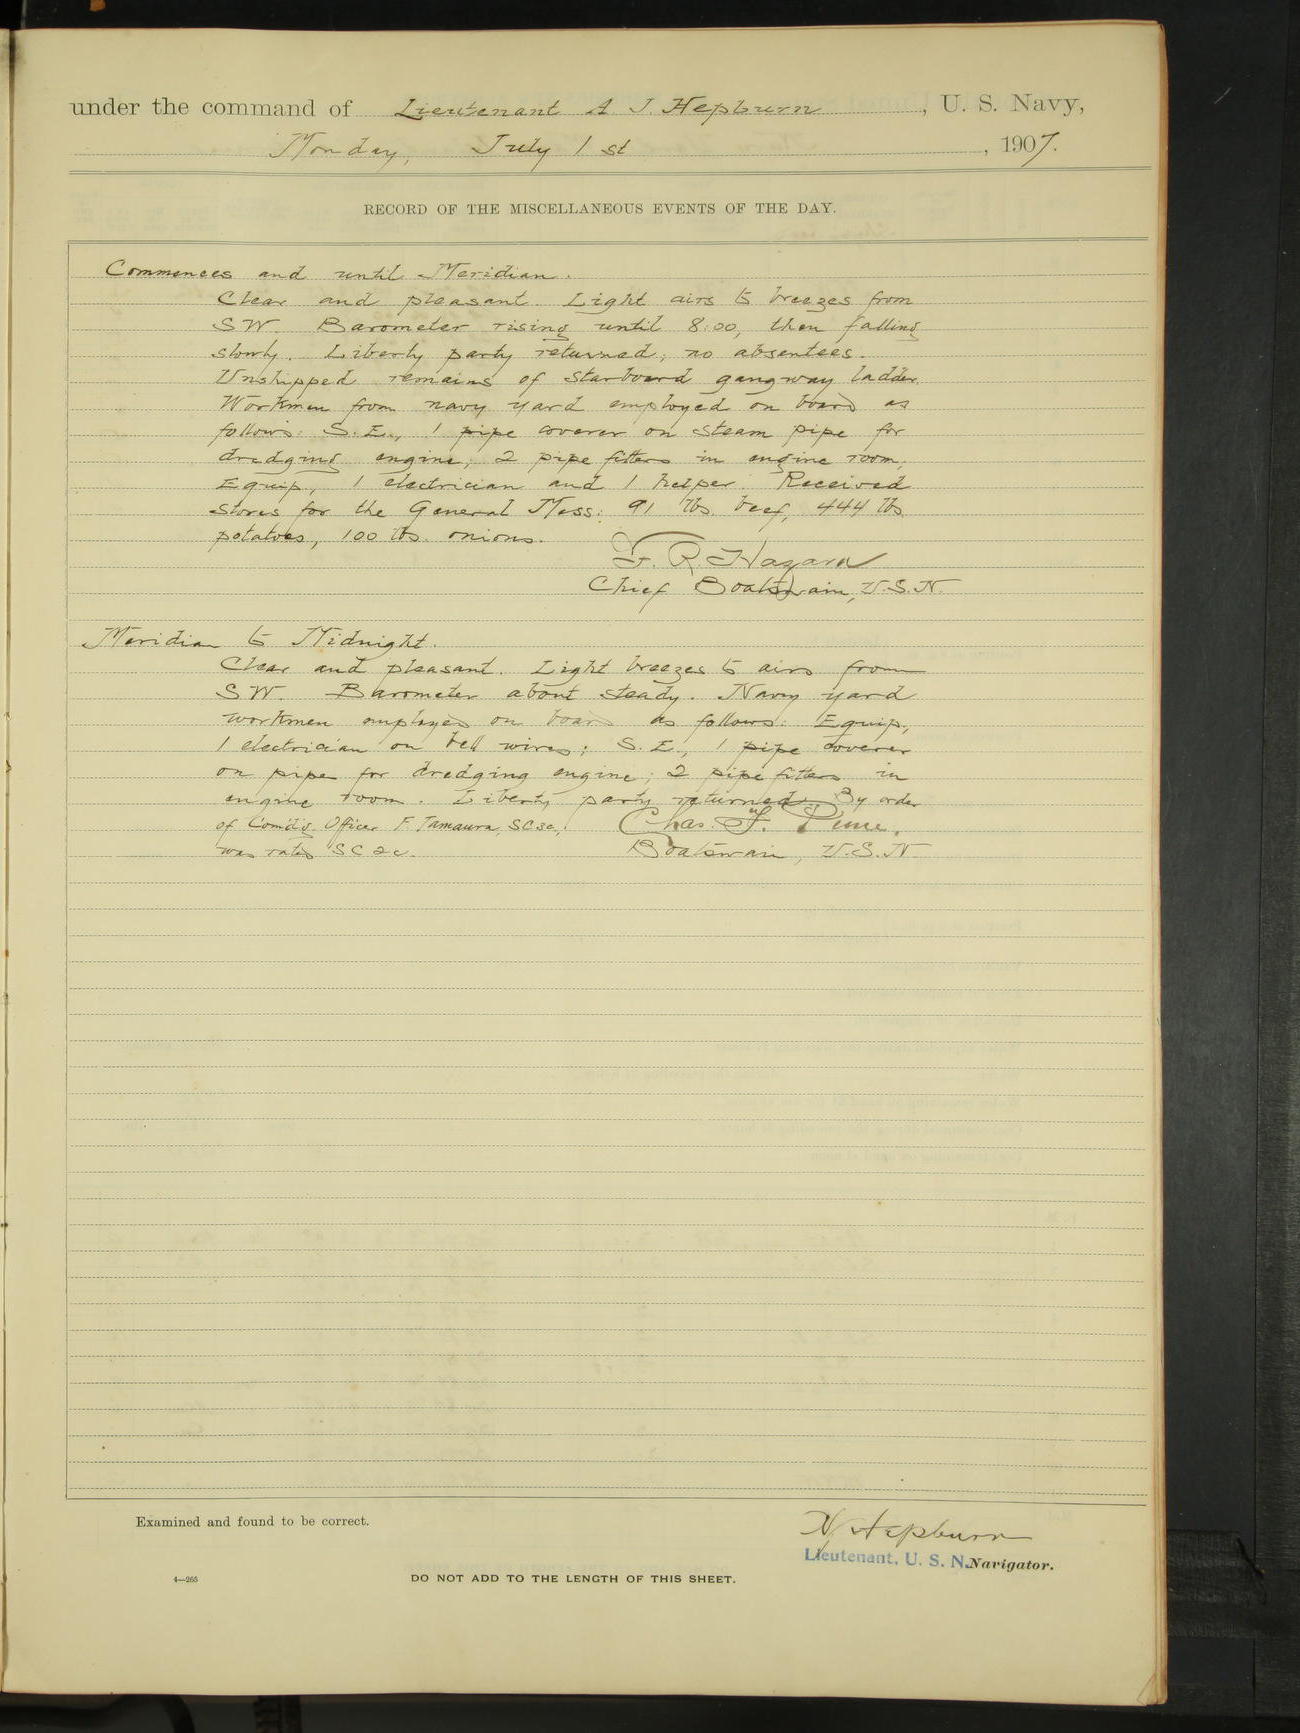 under the command of Lieutenant A J. Hepburn, U. S. Navy,
Monday, July 1 st, 1907.
RECORD OF THE MISCELLANEOUS EVENTS OF THE DAY.
Commences and until Meridian.
Clear and pleasant. Light airs to breezes from
SW. Barometer rising until 8:00, then falling
slowly. Liberty party returned; no absentees.
Unshipped remains of starboard gangway ladder.
Workmen from navy yard employed on board as
follows: S.E., 1 pipe coverer on steam pipe for
dredging engine; 2 pipe fitters in engine room;
Equip, 1 electrician and 1 helper. Received
stores for the General Mess: 91 lbs. beef, 444 lbs.
potatoes, 100 lbs. onions.
F. R. Hazard
Chief Boatswain, U.S.N.
Meridian to Midnight.
Clear and pleasant. Light breezes to airs from
SW. Barometer about steady. Navy yard
workmen employed on board as follows: Equip,
1 electrician on bell wires; S.E., 1 pipe coverer
on pipe for dredging engine; 2 pipe fitters in
engine room. Liberty party returned. By order
of Com'd'g. Officer F. Tamaura, SC3c,
Chas.
was rated SC2c.
Boatswain, U.S.N.
Examined and found to be correct.
Hepburn
Lieutenant, U. S. N. Navigator.
4—265
DO NOT ADD TO THE LENGTH OF THIS SHEET.